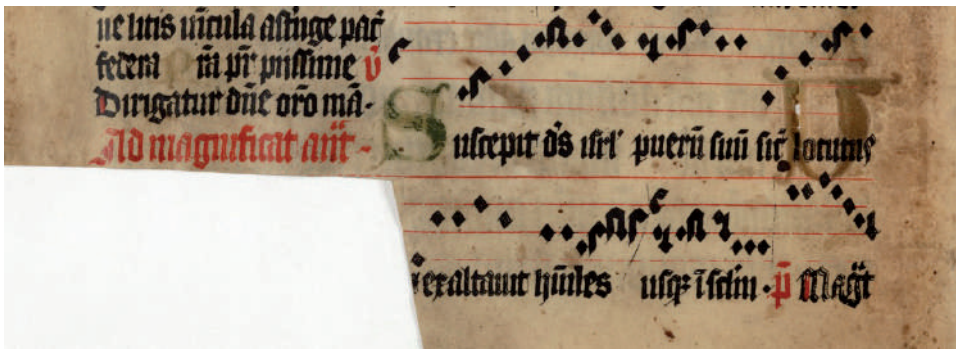 ne litis vi̅cula astringe pac̅
federa p̅ra p̅r piissime v̅
Dirigatur dn̅e or̅o m̅a.
Ad magnificat an̅t
Suscepit d̅s isrl' pueru̅ suu̅ sic̅ locutus
exaltauit hu̅iles usq̢ i̅ sclm̅ . p̅ Mag̅t